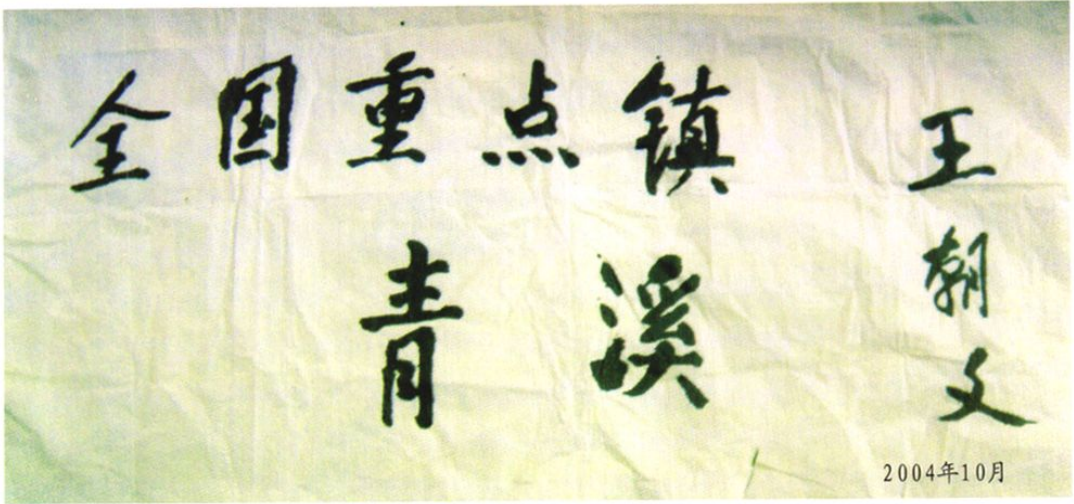 全国重点镇
青溪
王朝文
2004年10月